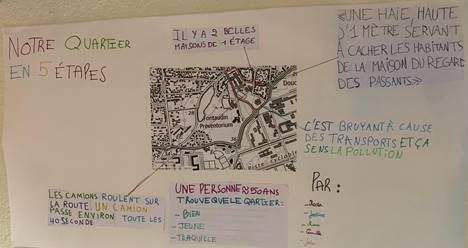 NOTRE QUARTIER
EN 5 ÉTAPES
IL Y A 2 BELLES
MAISONS DE 1 ÉTAGE
«UNE HAIE, HAUTE
J'1 MÈTRE SERVANT
À CACHER LES HABITANTS
DE LA MAISON DU REGARD
DES PASSANTS»
Douc
Fontaudin
Préventorium
28
C'EST BRUYANT À CAUSE
DES TRANSPORTS ET ÇA
SENS LA POLLUTION
LES CAMIONS ROULENT SUR
LA ROUTE. UN CAMION
PASSE ENVIRON TOUTE LES
40 SECONDE
UNE PERSONNE DE 50 ANS
TROUVE QUE LE QARTIER:
- BIEN
- JEUNE
- TRAQUILLE
PAR: